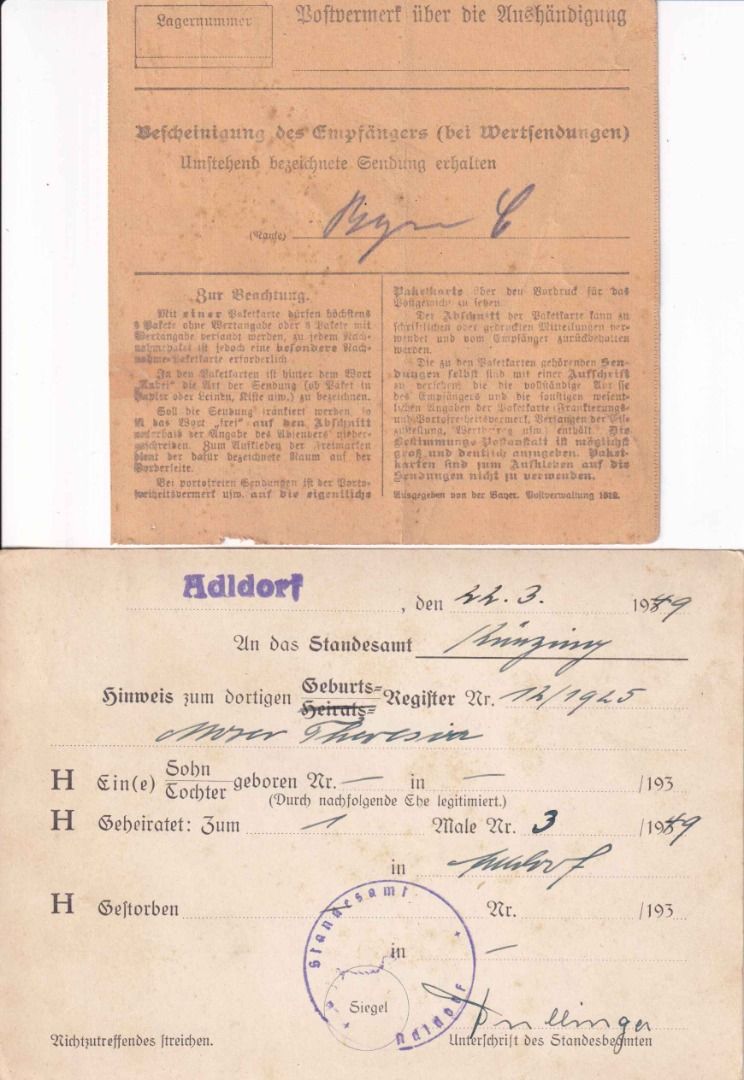 Lagernummer
Postvermerk über die Aushändigung
Bescheinigung des Empfängers (bei Wertsendungen)
Umstehend bezeichnete Sendung erhalten
(Name)
Zur Beachtung.
Mit einer Paketkarte dürfen höchstens
3 Pakete ohne Wertangabe oder 3 Pakete mit
Wertangabe versandt werden, zu jedem Nach-
nahmepaket ist jedoch eine besondere Nach-
nahme-Paketkarte erforderlich.
In den Paketkarten ist hinter dem Wort
„Anbei“ die Art der Sendung (ob Paket in
Papier oder Leinen, Kiste usw.) zu bezeichnen.
Soll die Sendung frankiert werden, so
ist das Wort „frei“ auf den Abschnitt
unterhalb der Angabe des Absenders nieder-
zuschreiben. Zum Aufkleben der Freimarken
dient der dafür bezeichnete Raum auf der
Vorderseite.
Bei portofreien Sendungen ist der Porto-
freiheitsvermerk usw. auf die eigentliche
Paketkarte über den Vordruck für das
Postgewicht zu setzen.
Der Abschnitt der Paketkarte kann zu
schriftlichen oder gedruckten Mitteilungen ver-
wendet und vom Empfänger zurückbehalten
werden.
Die zu den Paketkarten gehörenden Sen-
dungen selbst sind mit einer Aufschrift
zu versehen, die die vollständige Adresse
des Empfängers und die sonstigen wesent-
lichen Angaben der Paketkarte (Frankierungs-
und Portofreiheitsvermerk, Verlangen der Eil-
zustellung, Wertbetrag usw.) enthält. Die
Bestimmungs-Postanstalt ist möglichst
groß und deutlich anzugeben. Paket-
karten sind zum Aufkleben auf die
Sendungen nicht zu verwenden.
Ausgegeben von der Bayer. Postverwaltung 1912.
Adldorf, den 22. 3. 1949
An das Standesamt Künzing
Hinweis zum dortigen Geburts=
Heirats= Register Nr. 12/1925
Moser Theresia
H Ein(e) Sohn
Tochter geboren Nr. — in — /193
(Durch nachfolgende Ehe legitimiert.)
H Geheiratet: Zum 1 Male Nr. 3 /1949
in Adldorf
H Gestorben Nr. /193
in —
Standesamt
Siegel
Adldorf
Nichtzutreffendes streichen.
Unterschrift des Standesbeamten